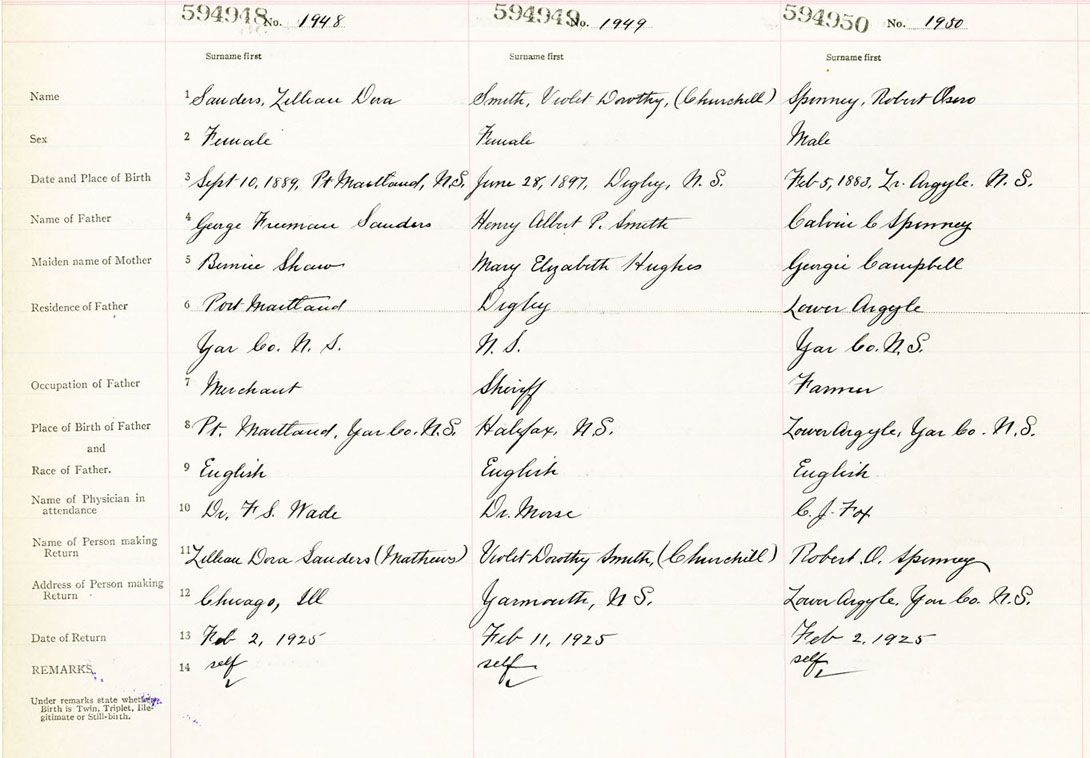 594948 No. 1948 594949 No. 1949 594950 No. 1950
Surname first Surname first Surname first
Name 1 Sanders, Lillian Dora Smith, Violet Dorothy, (Churchill) Spinney, Robert
Sex 2 Female Female Male
Date and Place of Birth 3 Sept 10, 1889, Pt Maitland, N.S. June 28, 1897, Digby, N.S. Feb 5, 1883, Lr. Argyle. N.S.
Name of Father 4 George Freeman Sanders Henry Albert P. Smith Calvin C Spinney
Maiden name of Mother 5 Bernice Shaw Mary Elizabeth Hughes Georgie Campbell
Residence of Father 6 Port Maitland Digby Lower Argyle
Yar Co. N.S. N.S. Yar Co. N.S.
Occupation of Father 7 Merchant Sheriff Farmer
Place of Birth of Father 8 Pt. Maitland, Yar Co. N.S. Halifax, N.S. Lower Argyle, Yar Co. N.S.
and
Race of Father. 9 English English English
Name of Physician in
attendance 10 Dr. F S. Wade Dr. Morse C. J. Fox
Name of Person making
Return 11 Lillian Dora Sanders (Mathews) Violet Dorothy Smith, (Churchill) Robert O. Spinney
Address of Person making
Return 12 Chicago, Ill Yarmouth, N.S. Lower Argyle, Yar Co. N.S.
Date of Return 13 Feb 2, 1925 Feb 11, 1925 Feb 2, 1925
REMARKS. 14 self self self
Under remarks state whether
Birth is Twin, Triplet, Ille-
gitimate or Still-birth.